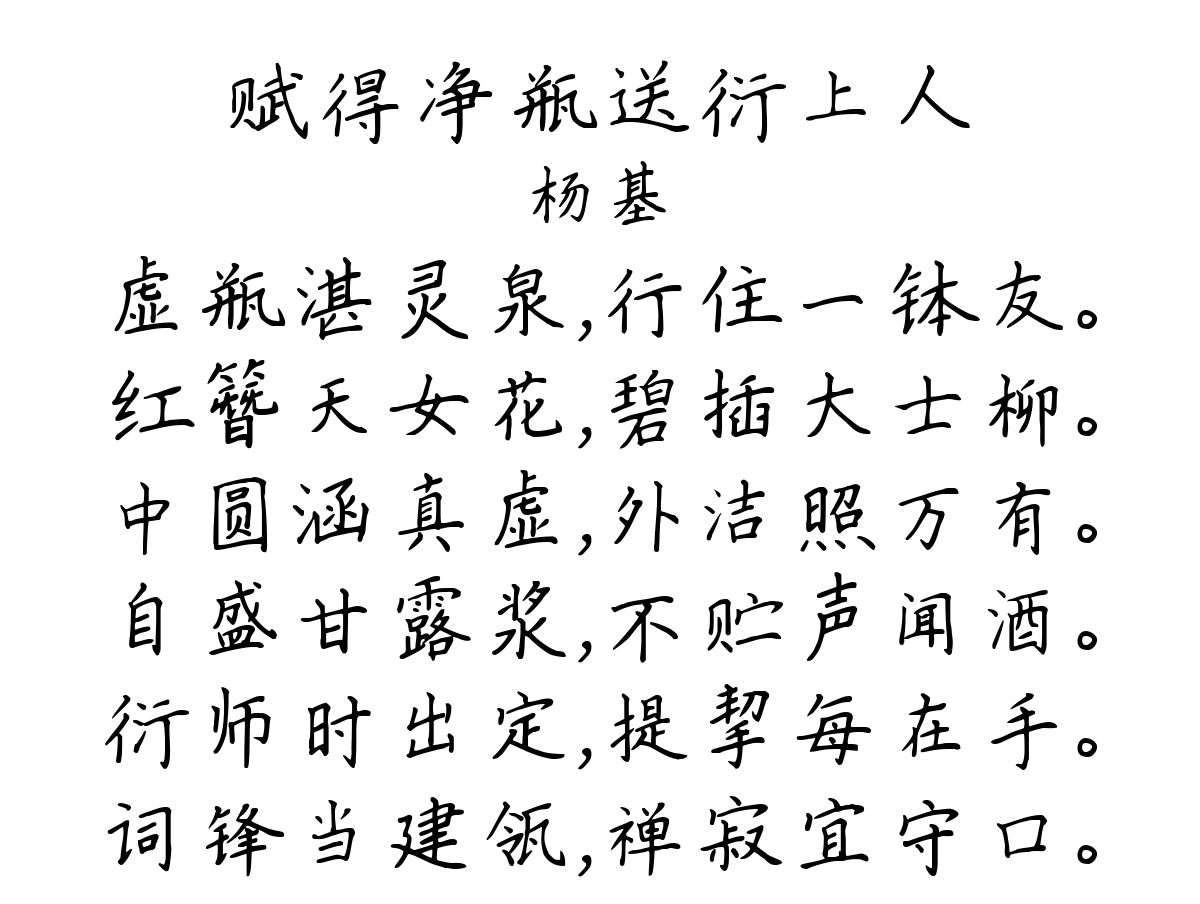 赋得净瓶送衍上人
杨基
虚瓶湛灵泉,行住一钵友。
红簪天女花,碧插大士柳。
中圆涵真虚,外洁照万有。
自盛甘露浆,不贮声闻酒。
衍师时出定,提挈每在手。
词锋当建瓴,禅寂宜守口。